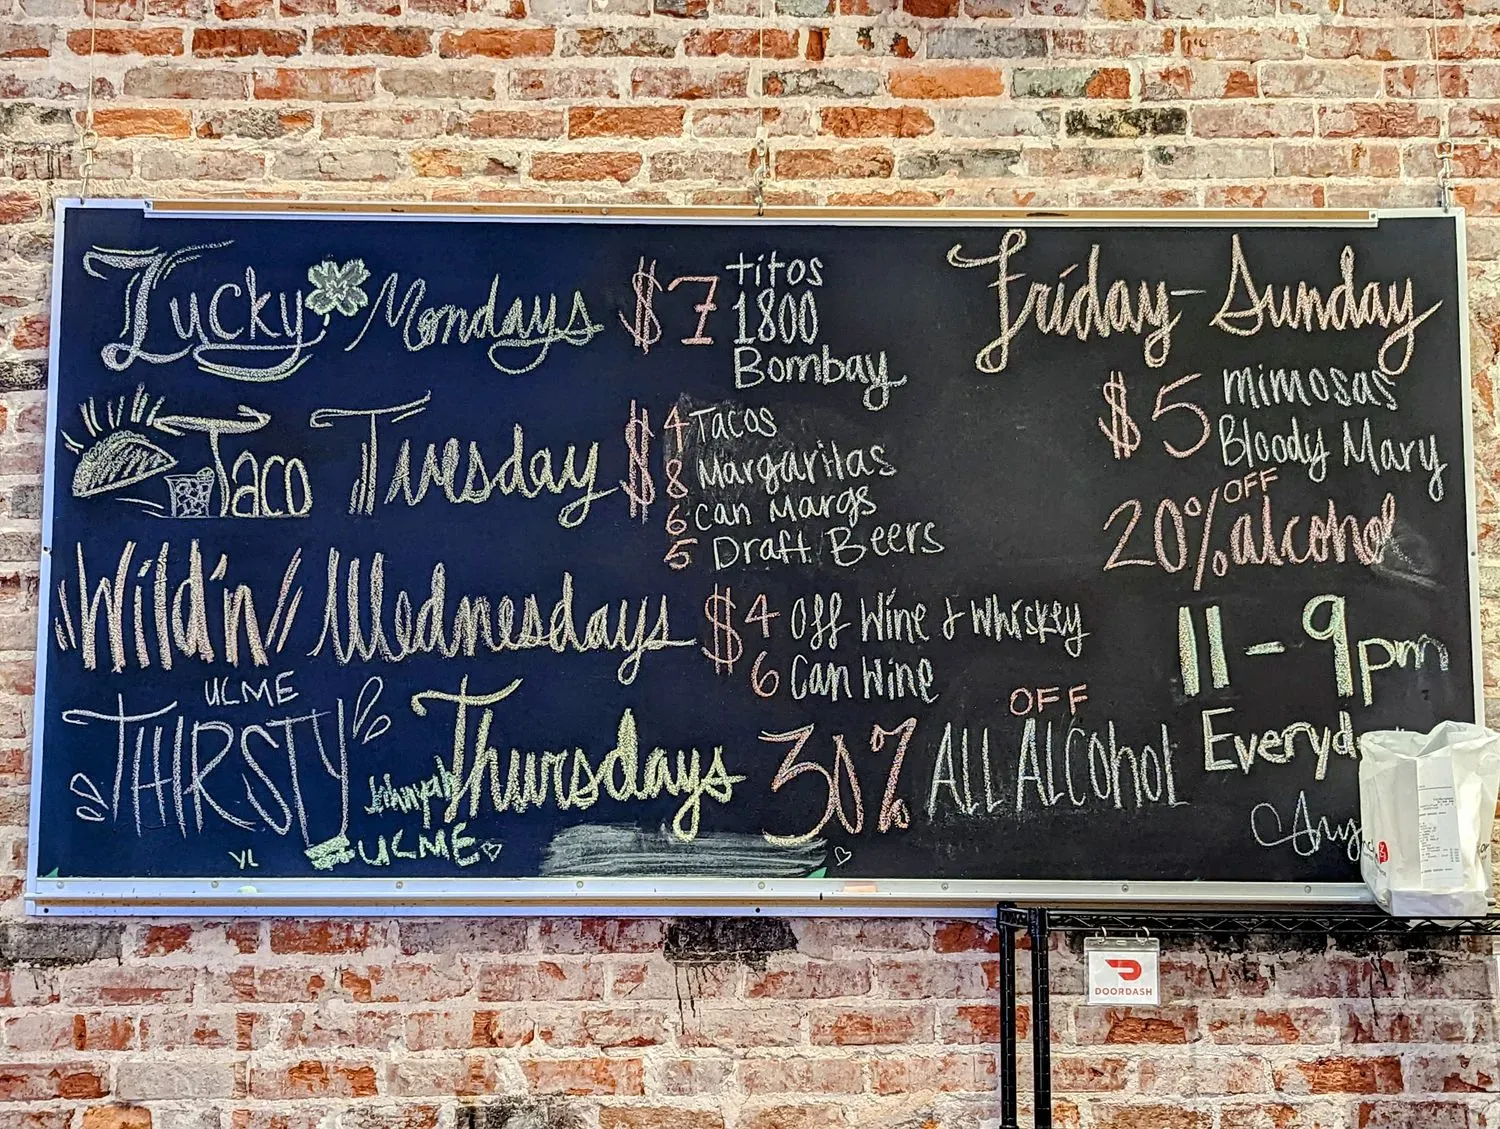 Lucky Mondays $7 titos
1800
Bombay
Taco Tuesday $ 4 Tacos
8 Margaritas
6 can Margs
5 Draft Beers
Wild'n Wednesdays $4 Off Wine & Whiskey
6 Can Wine
UCME
THIRSTY Thursdays 30% OFF ALL ALCohoL
UCME
VL
Friday - Sunday
$5 mimosas
Bloody Mary
20% OFF alcohol
11-9pm
Everyd
DOORDASH